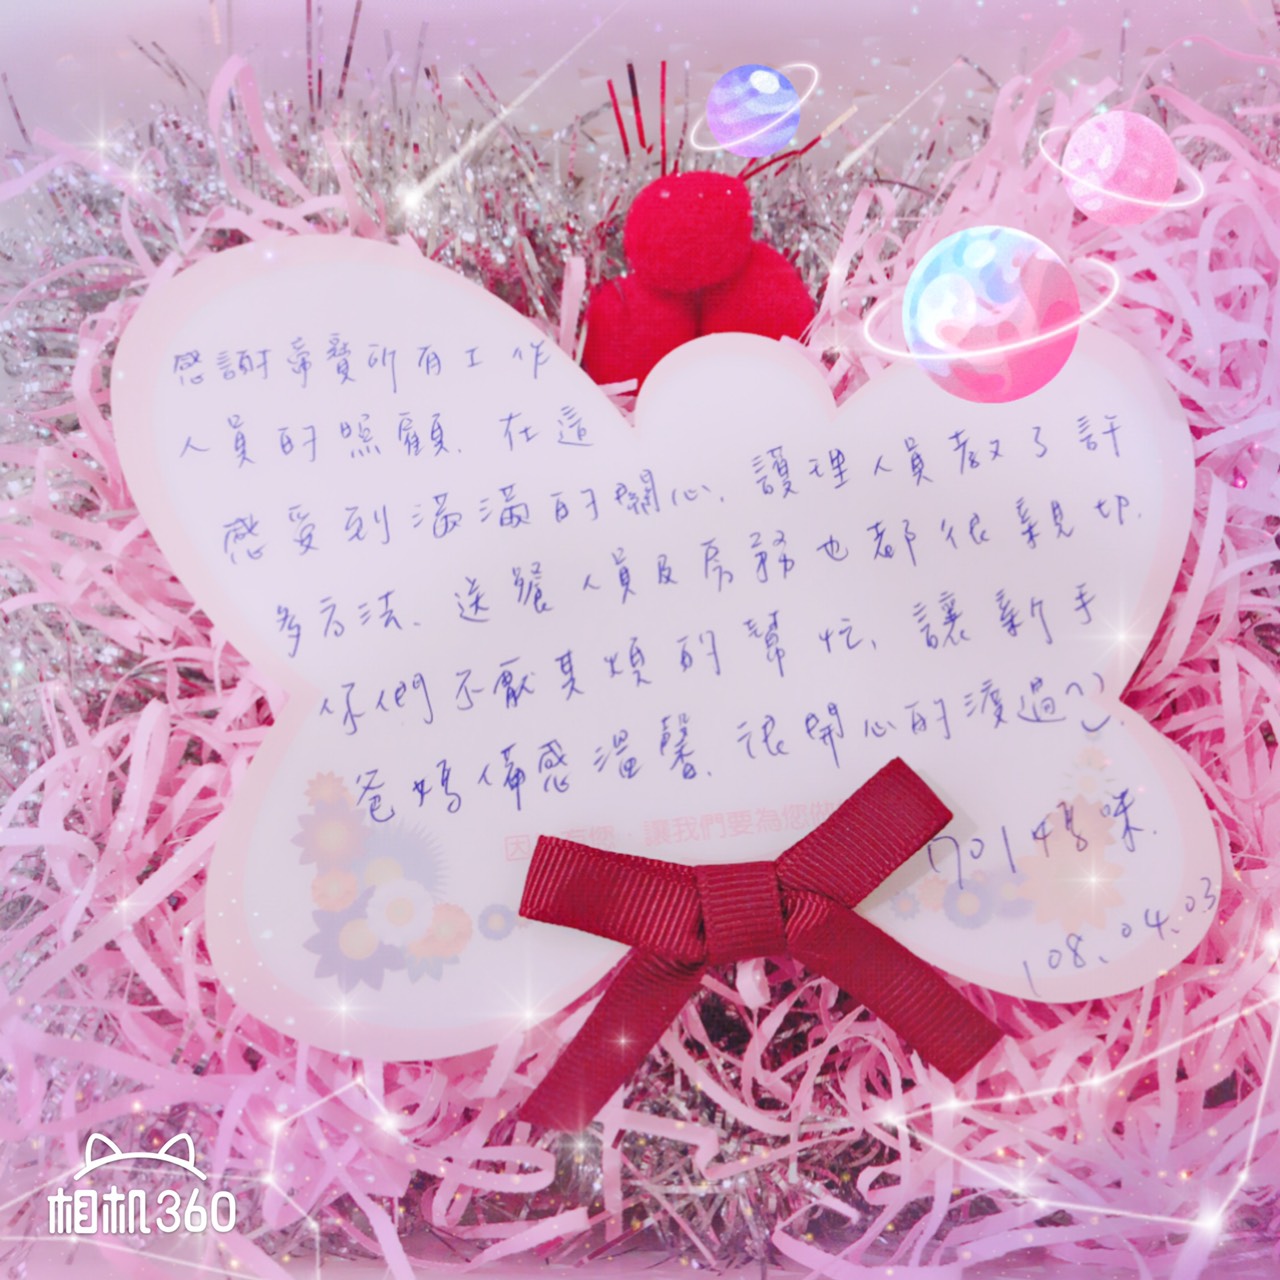 感謝帝寶所有工作
人員的照顧、在這
感受到滿滿的關心、護理人員教了許
多方法、送餐人員及房務也都很親切、
你們不厭其煩的幫忙、讓新手
爸媽備感溫馨、很開心的渡過:)
因為有您，讓我們要為您做
1701媽咪.
108.04.03
相机360